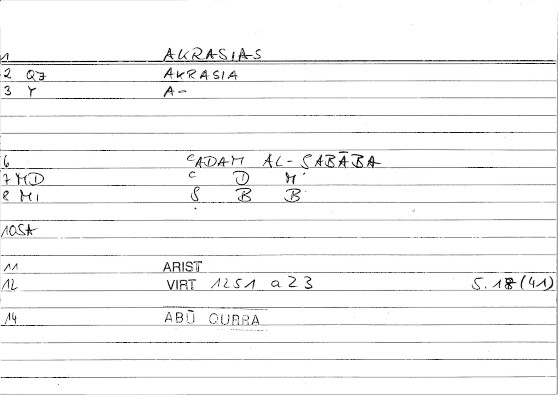 1 AKRASIAS
2 QZ AKRASIA
3 Y A-
6 ʿADAM AL-ṢABĀBA
7 MD ʿ D M
8 M1 Ṣ B B
10SA
11 ARIST
12 VIRT 1251 a23 S. 18 (41)
14 ABŪ QURRA